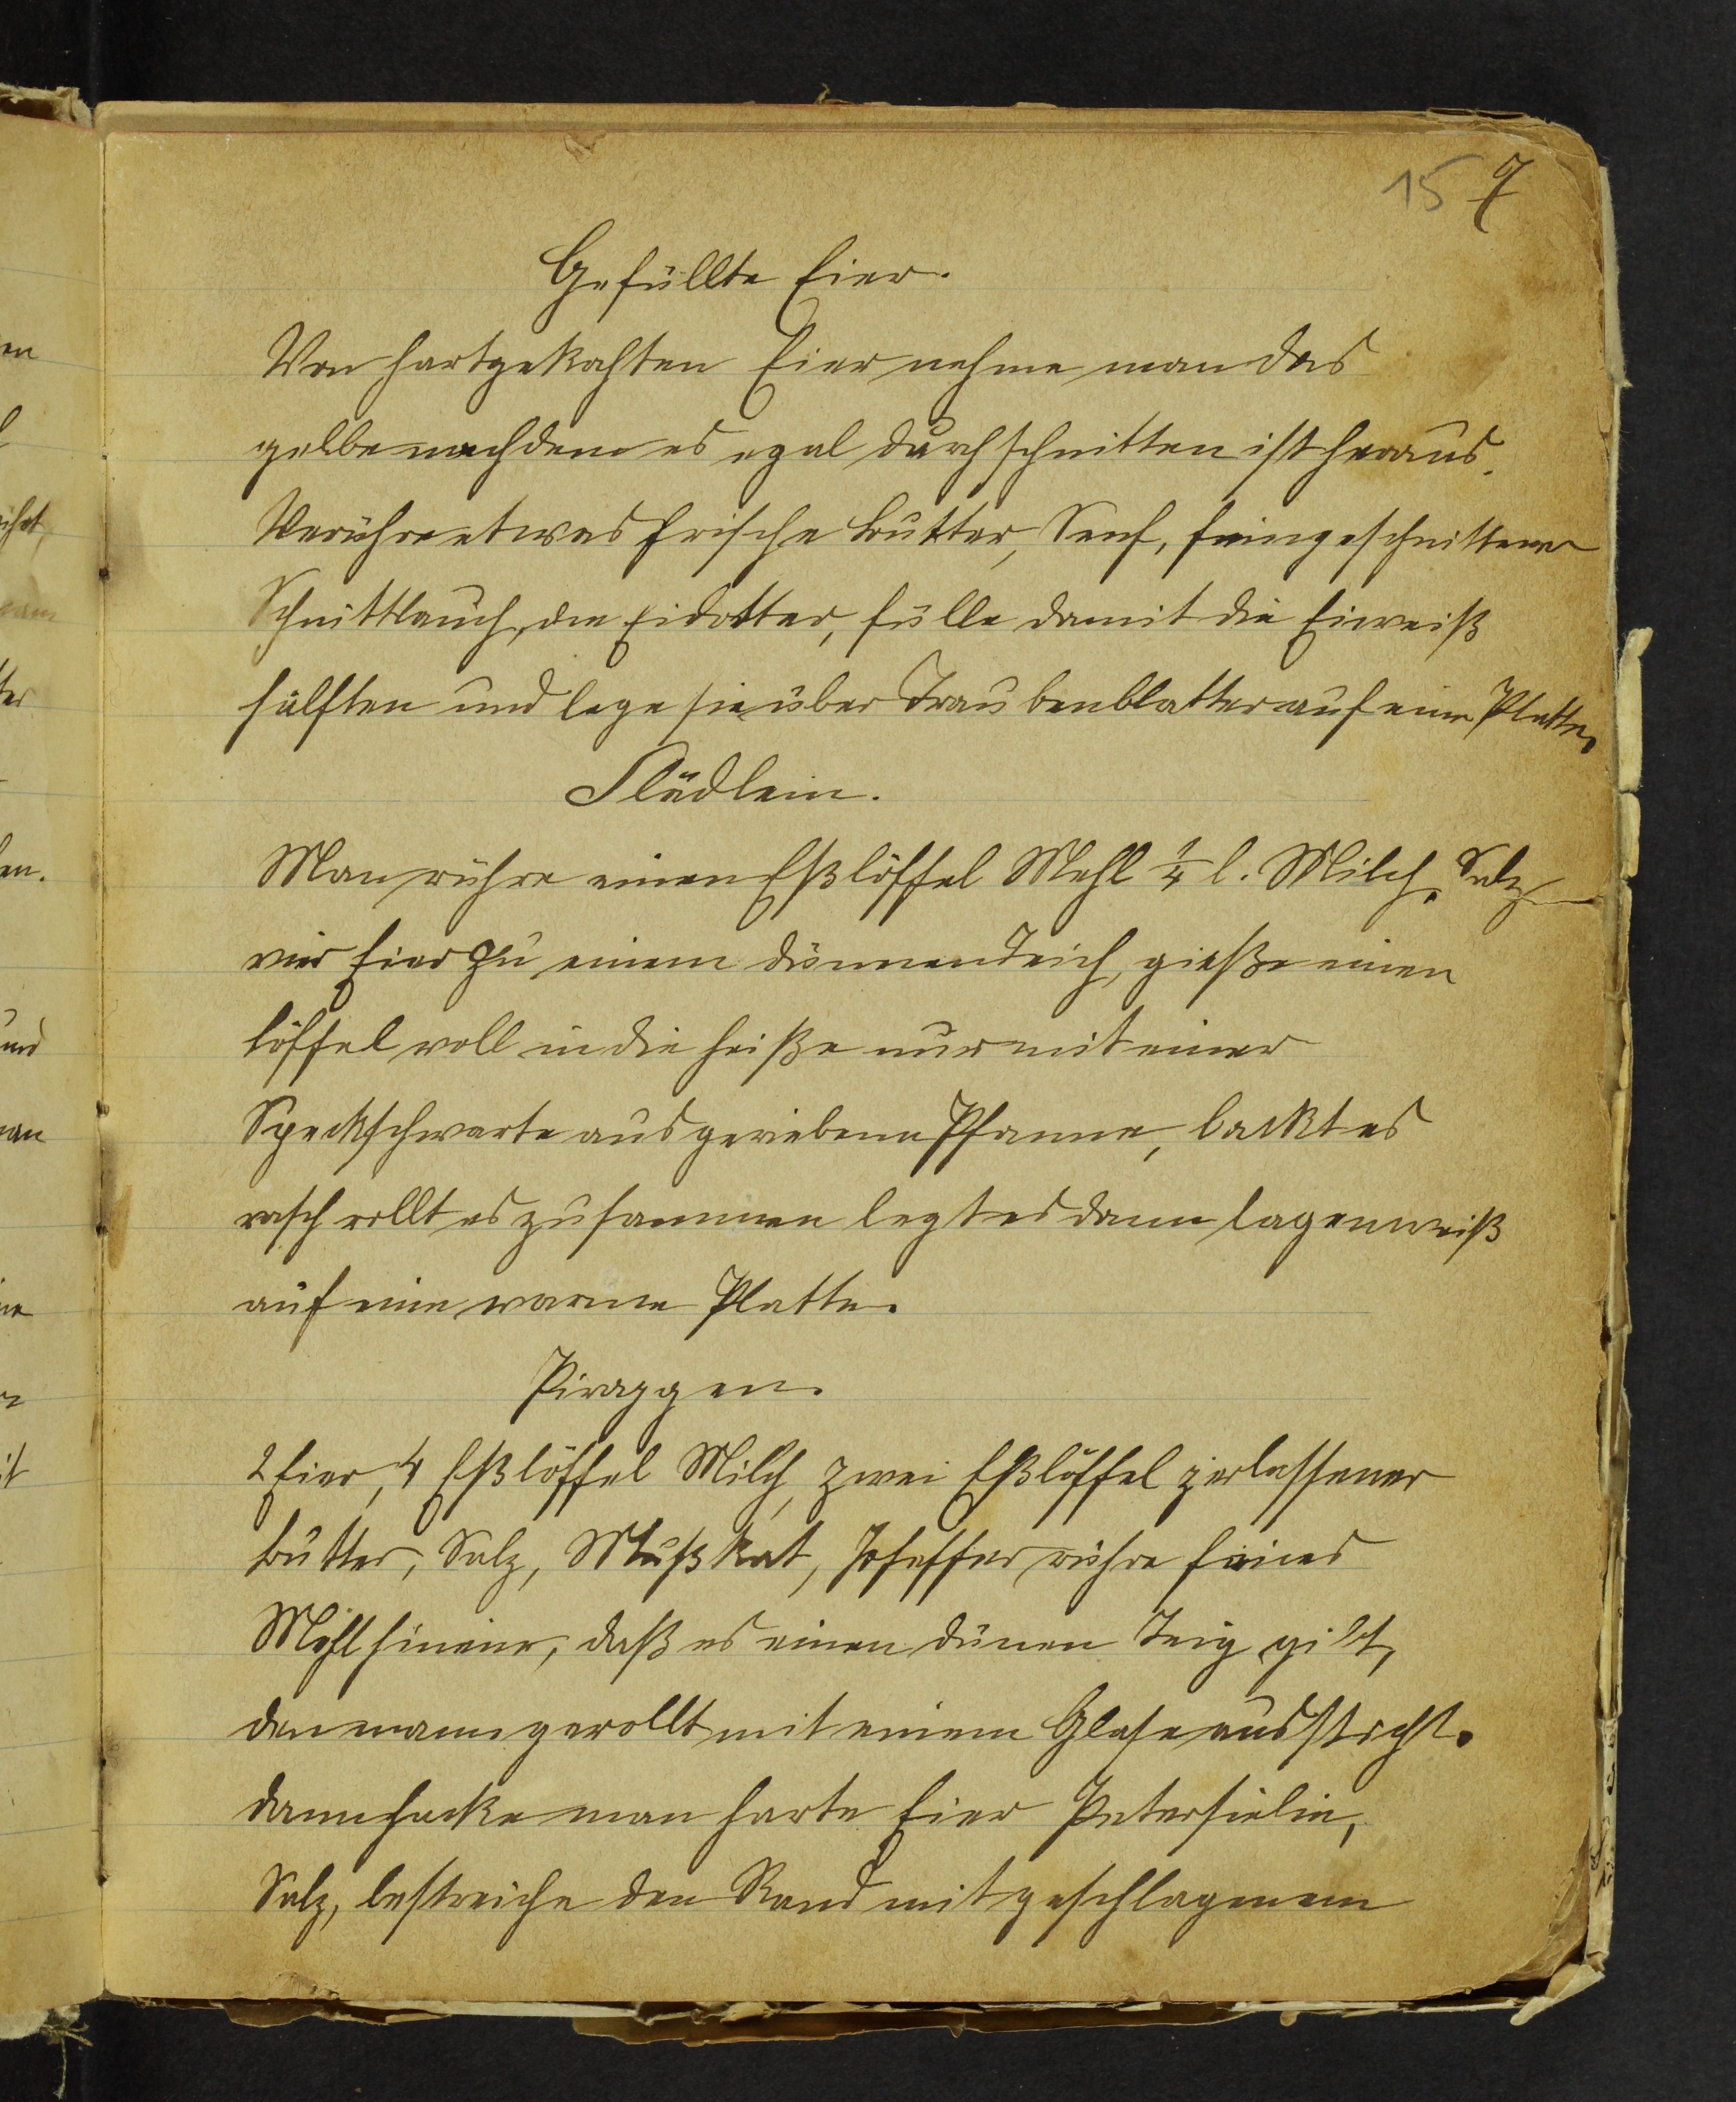 15 7
Gefüllte Eier.
Von hartgekochten Eier nehme man das
gelbe nachdem es egal durchschnitten ist heraus.
Verrühre etwas frische Butter, Senf, feingeschnittener
Schnittlauch, die Eidotter, fülle damit die Eiweiß
hälften und lege sie über Traubenblatter auf eine Platte.
Flädlein.
Man rühre einen Eßlöffel Mehl 1/4 l. Milch, Salz
vier Eier zu einem dünnen Teich, gieße einen
Löffel voll in die heiße nur mit einer
Speckschwarte ausgeriebene Pfanne, backt es
rasch rollt es zusammen legt es dann lagenweiß
auf eine warme Platte.
Piroggen.
2 Eier, 4 Eßlöffel Milch, zwei Eßlöffel zerlassener
Butter, Salz, Mußkat, Pfeffer rühre feines
Mehl hinein, daß es einen dünen Teig gibt,
den man gerollt mit einem Glase aussticht.
dann hacke man harte Eier Petersielie,
Salz, bestreiche den Rand mit geschlagenem